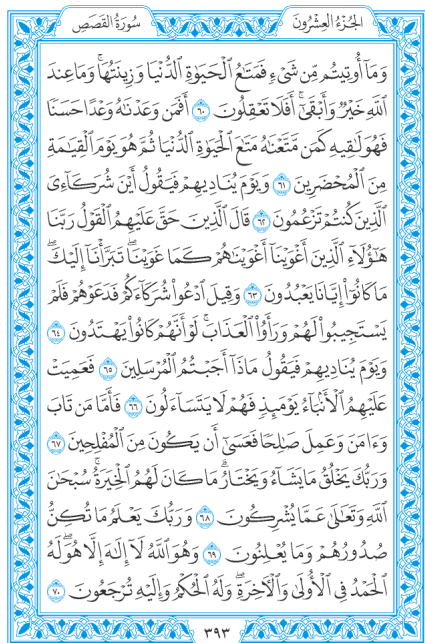 الجُزْءُ العِشْرُونَ
سُورَةُ القَصَصِ
وَمَآ أُوتِيتُم مِّن شَىْءٍ فَمَتَٰعُ ٱلْحَيَوٰةِ ٱلدُّنْيَا وَزِينَتُهَاۚ وَمَا عِندَ
ٱللَّهِ خَيْرٌ وَأَبْقَىٰٓۚ أَفَلَا تَعْقِلُونَ ٦٠ أَفَمَن وَعَدْنَٰهُ وَعْدًا حَسَنًا
فَهُوَ لَٰقِيهِ كَمَن مَّتَّعْنَٰهُ مَتَٰعَ ٱلْحَيَوٰةِ ٱلدُّنْيَا ثُمَّ هُوَ يَوْمَ ٱلْقِيَٰمَةِ
مِنَ ٱلْمُحْضَرِينَ ٦١ وَيَوْمَ يُنَادِيهِمْ فَيَقُولُ أَيْنَ شُرَكَآءِىَ
ٱلَّذِينَ كُنتُمْ تَزْعُمُونَ ٦٢ قَالَ ٱلَّذِينَ حَقَّ عَلَيْهِمُ ٱلْقَوْلُ رَبَّنَا
هَٰٓؤُلَآءِ ٱلَّذِينَ أَغْوَيْنَآ أَغْوَيْنَٰهُمْ كَمَا غَوَيْنَاۖ تَبَرَّأْنَآ إِلَيْكَۖ
مَا كَانُوٓا۟ إِيَّانَا يَعْبُدُونَ ٦٣ وَقِيلَ ٱدْعُوا۟ شُرَكَآءَكُمْ فَدَعَوْهُمْ فَلَمْ
يَسْتَجِيبُوا۟ لَهُمْ وَرَأَوُا۟ ٱلْعَذَابَۚ لَوْ أَنَّهُمْ كَانُوا۟ يَهْتَدُونَ ٦٤
وَيَوْمَ يُنَادِيهِمْ فَيَقُولُ مَاذَآ أَجَبْتُمُ ٱلْمُرْسَلِينَ ٦٥ فَعَمِيَتْ
عَلَيْهِمُ ٱلْأَنۢبَآءُ يَوْمَئِذٍ فَهُمْ لَا يَتَسَآءَلُونَ ٦٦ فَأَمَّا مَن تَابَ
وَءَامَنَ وَعَمِلَ صَٰلِحًا فَعَسَىٰٓ أَن يَكُونَ مِنَ ٱلْمُفْلِحِينَ ٦٧
وَرَبُّكَ يَخْلُقُ مَا يَشَآءُ وَيَخْتَارُۗ مَا كَانَ لَهُمُ ٱلْخِيَرَةُۚ سُبْحَٰنَ
ٱللَّهِ وَتَعَٰلَىٰ عَمَّا يُشْرِكُونَ ٦٨ وَرَبُّكَ يَعْلَمُ مَا تُكِنُّ
صُدُورُهُمْ وَمَا يُعْلِنُونَ ٦٩ وَهُوَ ٱللَّهُ لَآ إِلَٰهَ إِلَّا هُوَۖ لَهُ
ٱلْحَمْدُ فِى ٱلْأُولَىٰ وَٱلْءَاخِرَةِۖ وَلَهُ ٱلْحُكْمُ وَإِلَيْهِ تُرْجَعُونَ ٧٠
٣٩٣